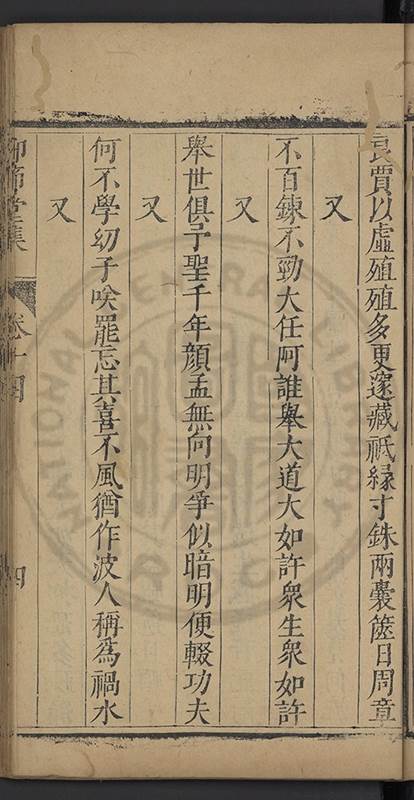 良賈以虛殖殖多更邃藏祗緣寸銖兩囊篋日周章
又
不百鍊不勁大任阿誰舉大道大如許衆生衆如許
又
舉世俱予聖千年顏孟無向明爭似暗明便輟功夫
又
何不學幼子唉罷忘其喜不風猶作波人稱為禍水
又
卷十四
四
NATIONAL CENTRAL LIBRARY